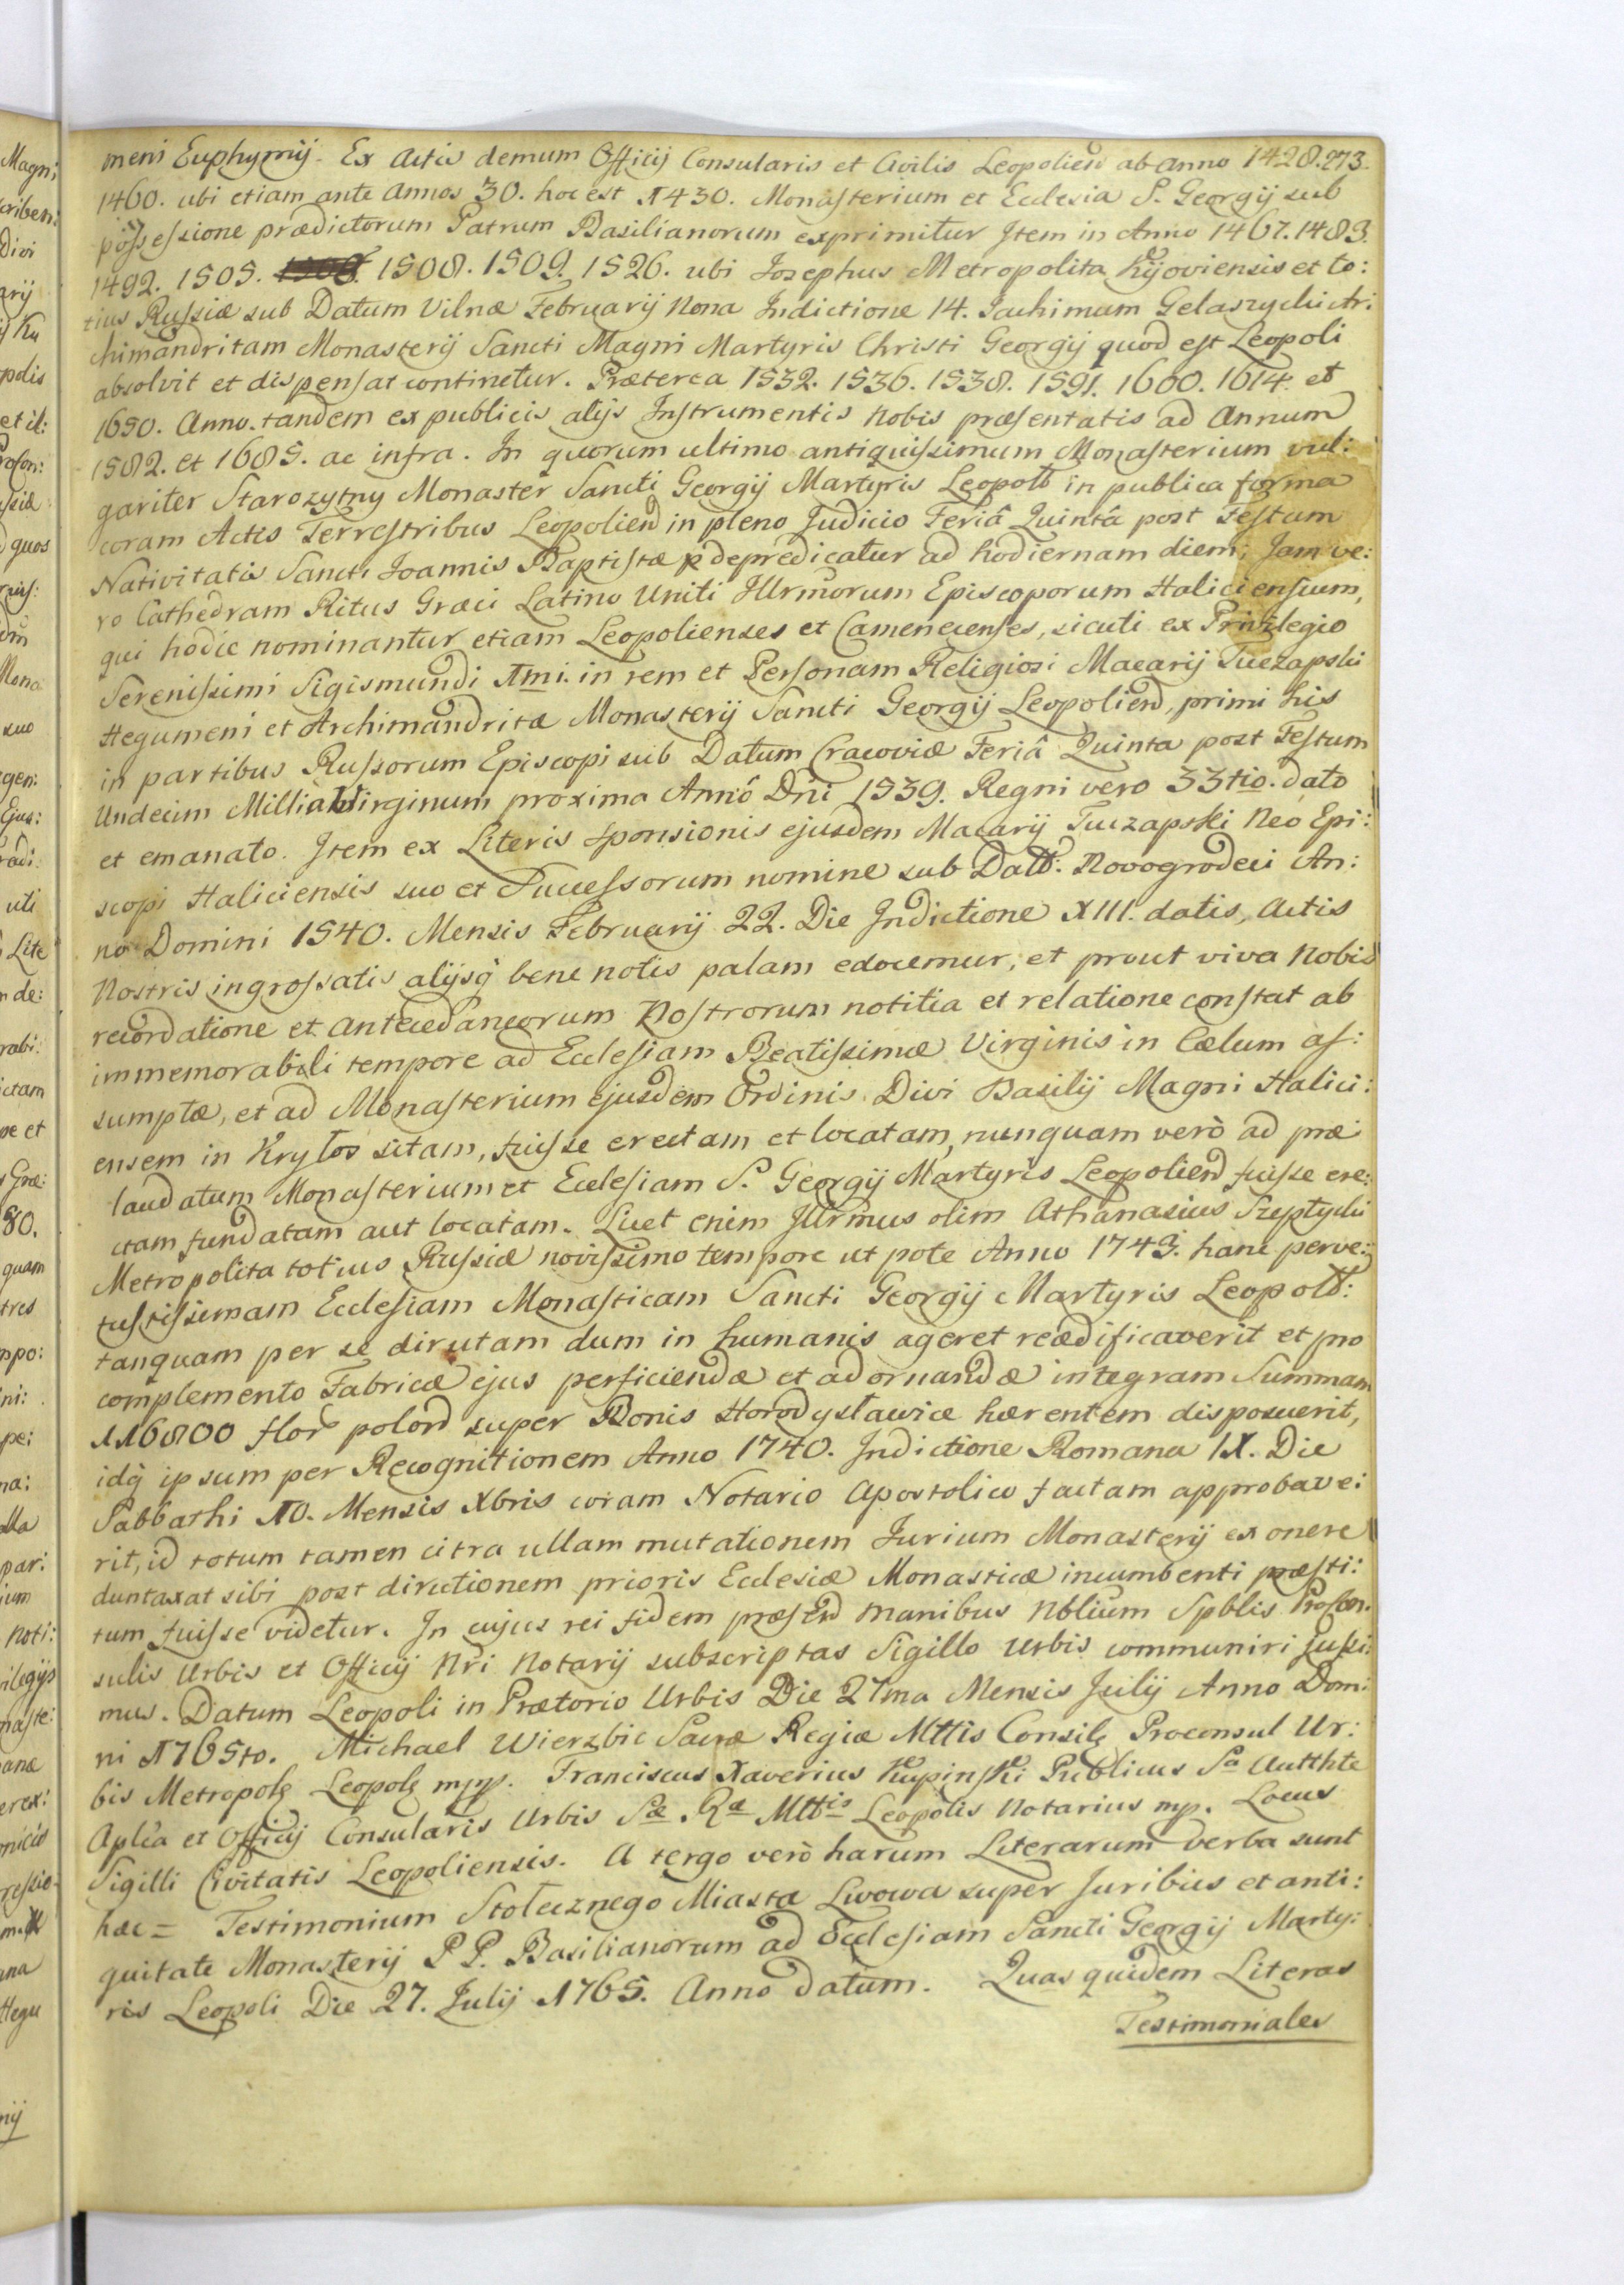 meni Euphymij. Ex Actis demum Officij Consularis et Civilis Leopolien ab Anno 1428. 273.
1460. ubi etiam ante Annos 30. hoc est 1430. Monasterium et Ecclesia S. Georgij sub
possessione prædictorum Patrum Basilianorum exprimitur Item in Anno 1467. 1483.
1492. 1505. 1508. 1509. 1526. ubi Josephus Metropolita Kijoviensis et to:
tius Russiæ sub Datum Vilnæ Februarij Nona Indictione 14. Jachimum Gelaszycki Ar:
chimandritam Monasterij Sancti Magni Martyris Christi Georgij quod est Leopoli
absolvit et dispensat continetur. Præterea 1532. 1536. 1538. 1591. 1600. 1614. et
1650. Anno. tandem ex publicis alijs Instrumentis Nobis præsentatis ad Annum
1582. et 1685. ac infra. In quorum ultimo antiquissimum Monasterium vul:
gariter Starozytny Monaster Sancti Georgij Martyris Leopoln in publica forma
coram Actis Terrestribus Leopolien in pleno Judicio Feriâ Quintâ post Festum
Nativitatis Sancti Joannis Baptistæ depredicatur ad hodiernam diem; Jam ve:
ro Cathedram Ritus Græci Latino Uniti Illrmorum Episcoporum Haliciensium,
qui hodie nominantur etiam Leopolienses et Camenecenses, sicuti ex Privilegio
Serenissimi Sigismundi 1mi. in rem et Personam Religiosi Macarij Tuczapski
Hegumeni et Archimandritæ Monasterij Sancti Georgij Leopolien, primi his
in partibus Russorum Episcopi sub Datum Cracoviæ Feriâ Quinta post Festum
Undecim Millia Virginum proxima Annô Dni 1539. Regni vero 33tio. dato
et emanato. Item ex Literis sponsionis ejusdem Macarij Tuczapski Neo Epi:
scopi Haliciensis suo et Successorum nomine sub Datt: Novogrodeci An:
no Domini 1540. Mensis Februarij 22. Die Indictione XIII. datis, Actis
Nostris ingrossatis alijsq̃ bene notis palam edocemur, et prout viva Nobis
recordatione et Antecedaneorum Nostrorum notitia et relatione constat ab
immemorabili tempore ad Ecclesiam Beatissimæ Virginis in Cælum as:
sumptæ, et ad Monasterium ejusdem Ordinis Divi Basilij Magni Halici:
ensem in Krylos sitam, fuisse erectam et locatam, nunquam verò ad præ
laudatum Monasterium et Ecclesiam S. Georgij Martyris Leopolien fuisse ere:
ctam fundatam aut locatam. Licet enim Illrmus olim Athanasius Szeptycki
Metropolita totius Russiæ novissimo tempore ut pote Anno 1743. hanc perve:
tustissimam Ecclesiam Monasticam Sancti Georgij Martyris Leopoln:
tanquam per se dirutam dum in humanis ageret reædificaverit et pro
complemento Fabricæ ejus perficiendæ et adornandæ integram Summam
116800 flor polon super Bonis Horodyslawice hærentem disposuerit,
idq̃ ipsum per Recognitionem Anno 1740. Indictione Romana IX. Die
Sabbathi 10. Mensis Xbris coram Notario Apostolico factam approbave:
rit, id totum tamen citra ullam mutationem Jurium Monasterij ex onere
duntaxat sibi post dirutionem prioris Ecclesiæ Monasticæ incumbenti præsti:
tum fuisse videtur. In cujus rei fidem præsen manibus Nblium Spblis Procon:
sulis Urbis et Officij Nri Notarij subscriptas Sigillo Urbis communiri jussi:
mus. Datum Leopoli in Prætorio Urbis Die 27ma Mensis Julij Anno Domi
ni 1765to. Michael Wierzbic Sacræ Regiæ Mttis Consil Proconsul Ur:
bis Metropol Leopol mpp. Franciscus Xaverius Kupinski Publicus Sa Autthte
Aplica et Officij Consularis Urbis Sæ. Ræ Mttis Leopolis Notarius mp. Locus
Sigilli Civitatis Leopoliensis. A tergo verò harum Literarum verba sunt
hæc = Testimonium Stołecznego Miasta Lwowa super Juribus et anti:
quitate Monasterij P P. Basilianorum ad Ecclesiam Sancti Georgij Marty:
ris Leopoli Die 27. Julij 1765. Anno datum. Quas quidem Literas
Testimoniales